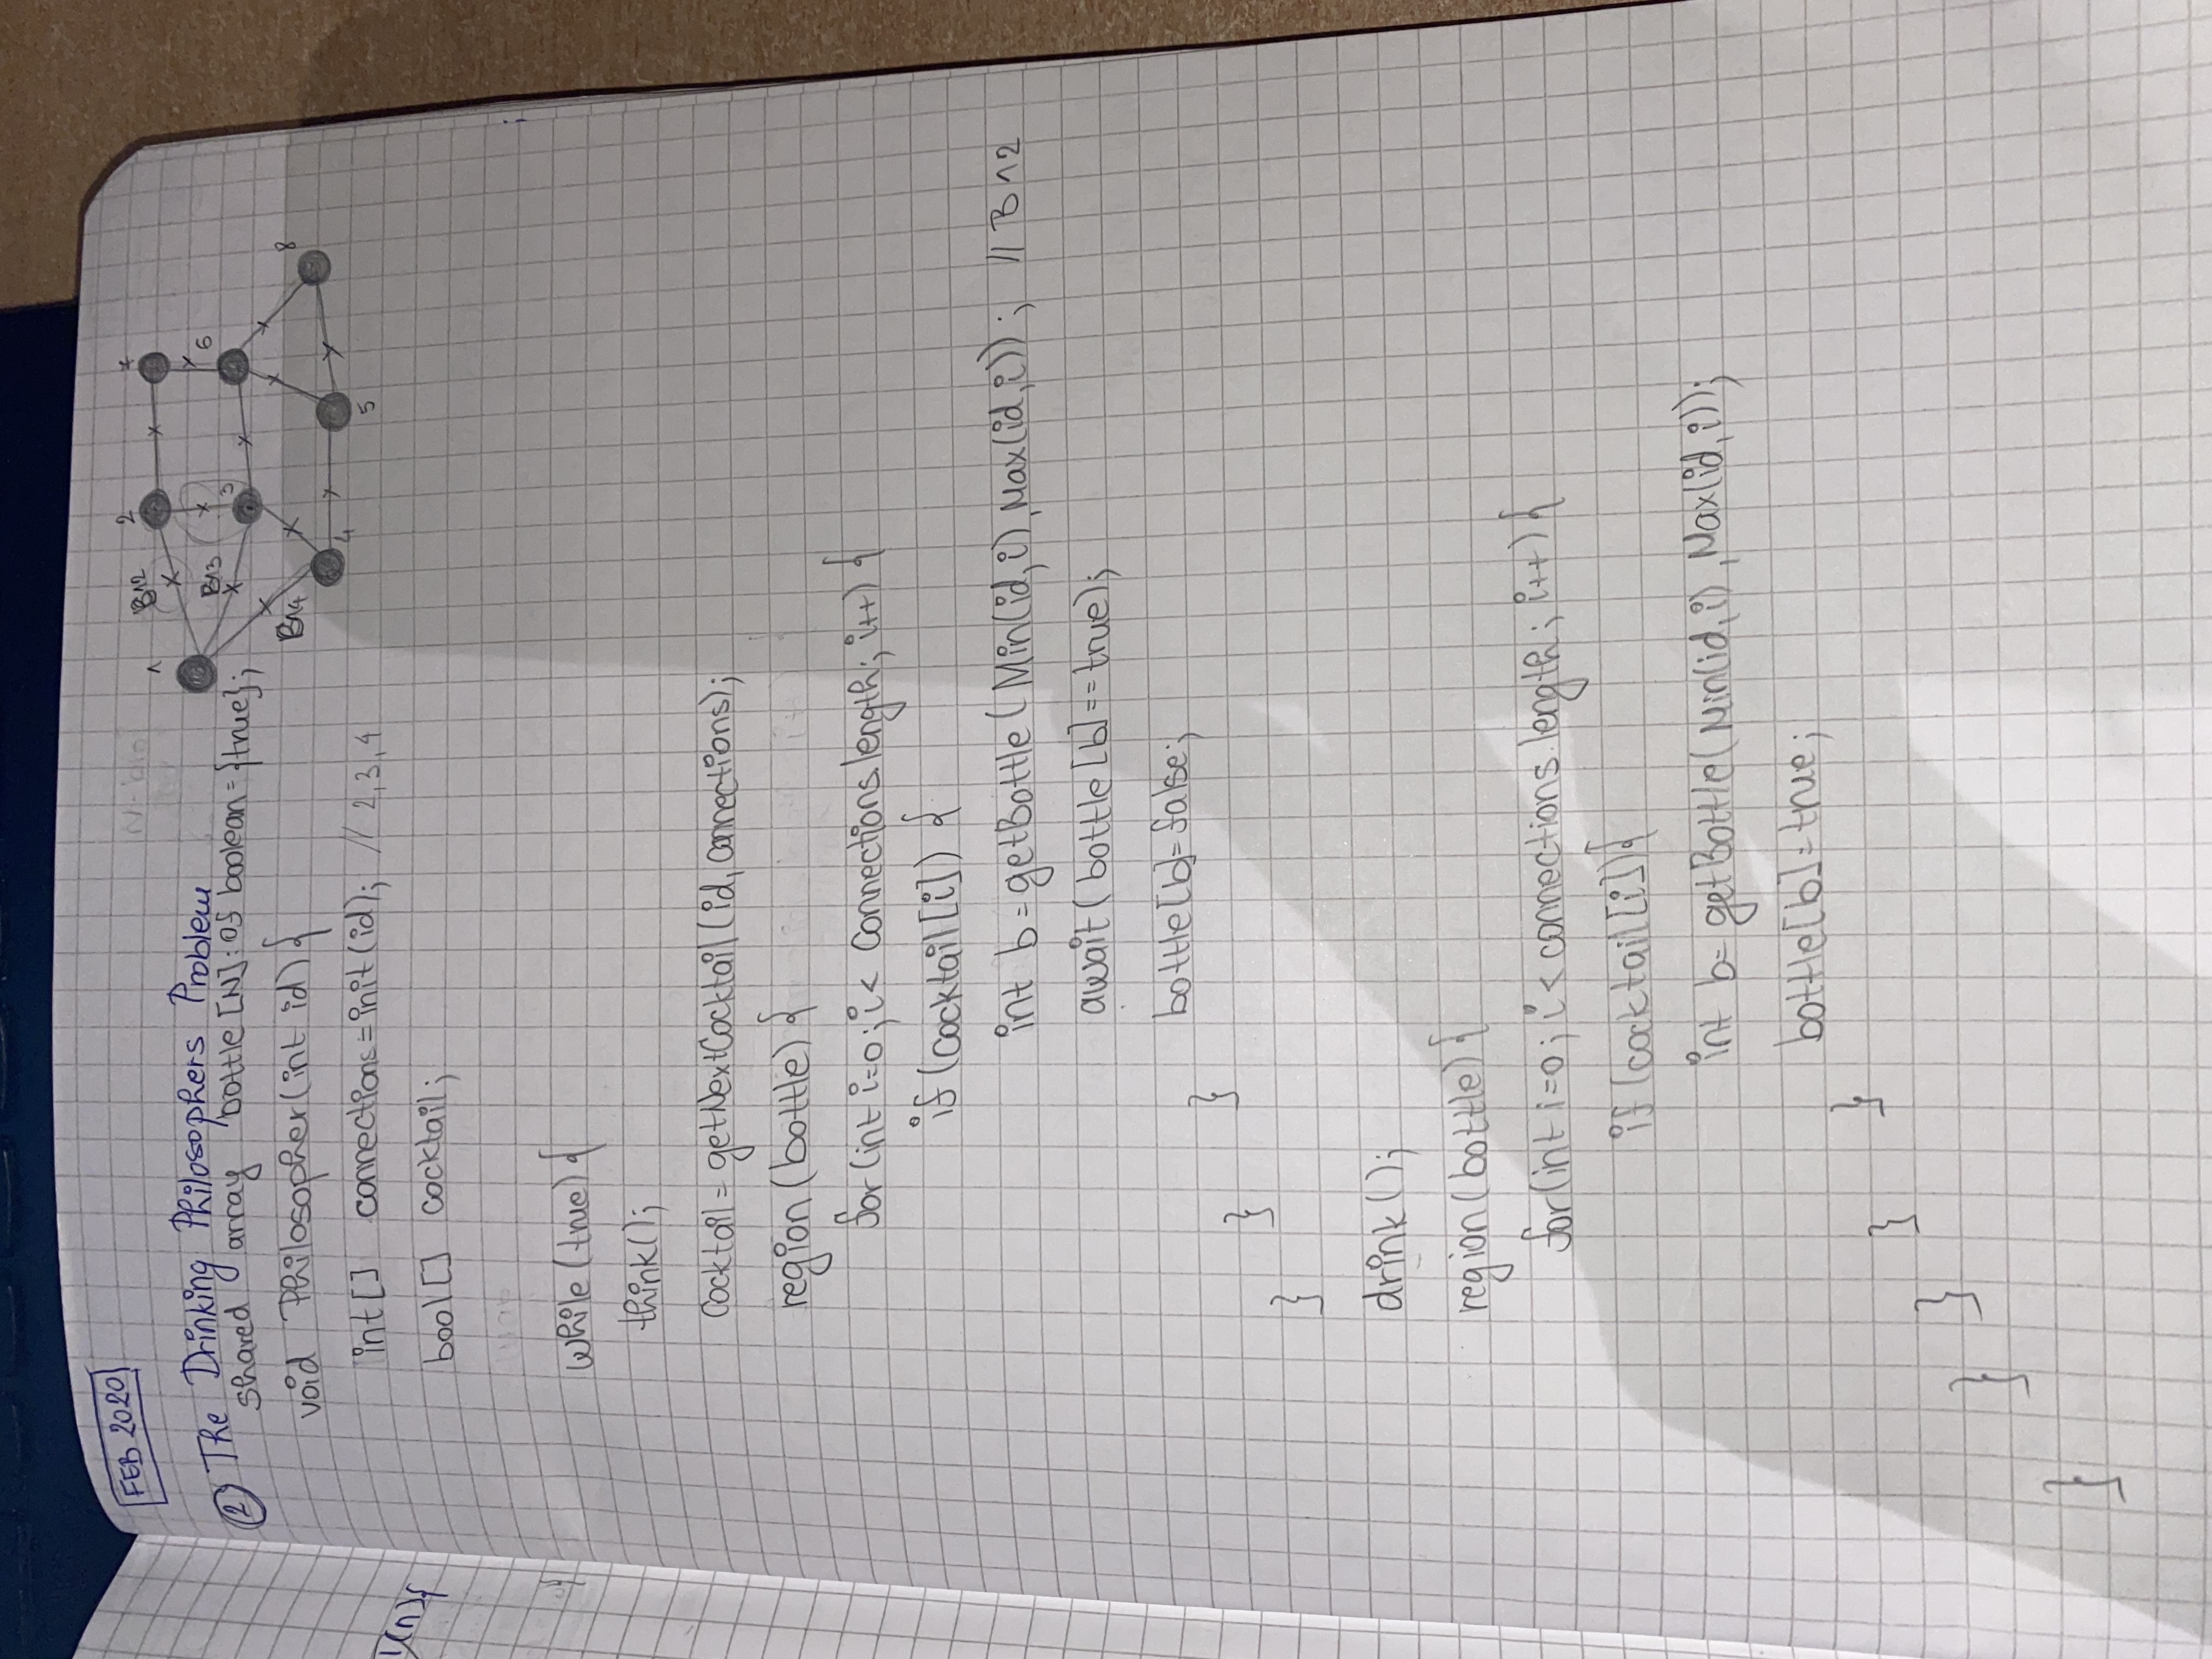 FEB 2020
② The Drinking Philosophers Problem
shared array bottle [N]: of boolean = {true};
void Philosopher(int id) {
int [] connections = init (id); // 2, 3, 4
bool [] cocktail;
while (true) {
think();
Cocktail = getNextCocktail (id, connections);
region (bottle) {
for (int i=0; i < Connections.length; i++) {
if (cocktail [i]) {
int b = getBottle ( Min(id,i), Max(id,i)); // B12
await ( bottle [b] == true);
bottle [b] = false;
}
}
}
drink ();
region (bottle) {
for (int i=0; i < connections.length; i++) {
if (cocktail [i]) {
int b = getBottle ( Min(id,i), Max(id,i));
bottle [b] = true;
}
}
}
}
}
1
B12
2
B13
3
6
B14
4
5
8